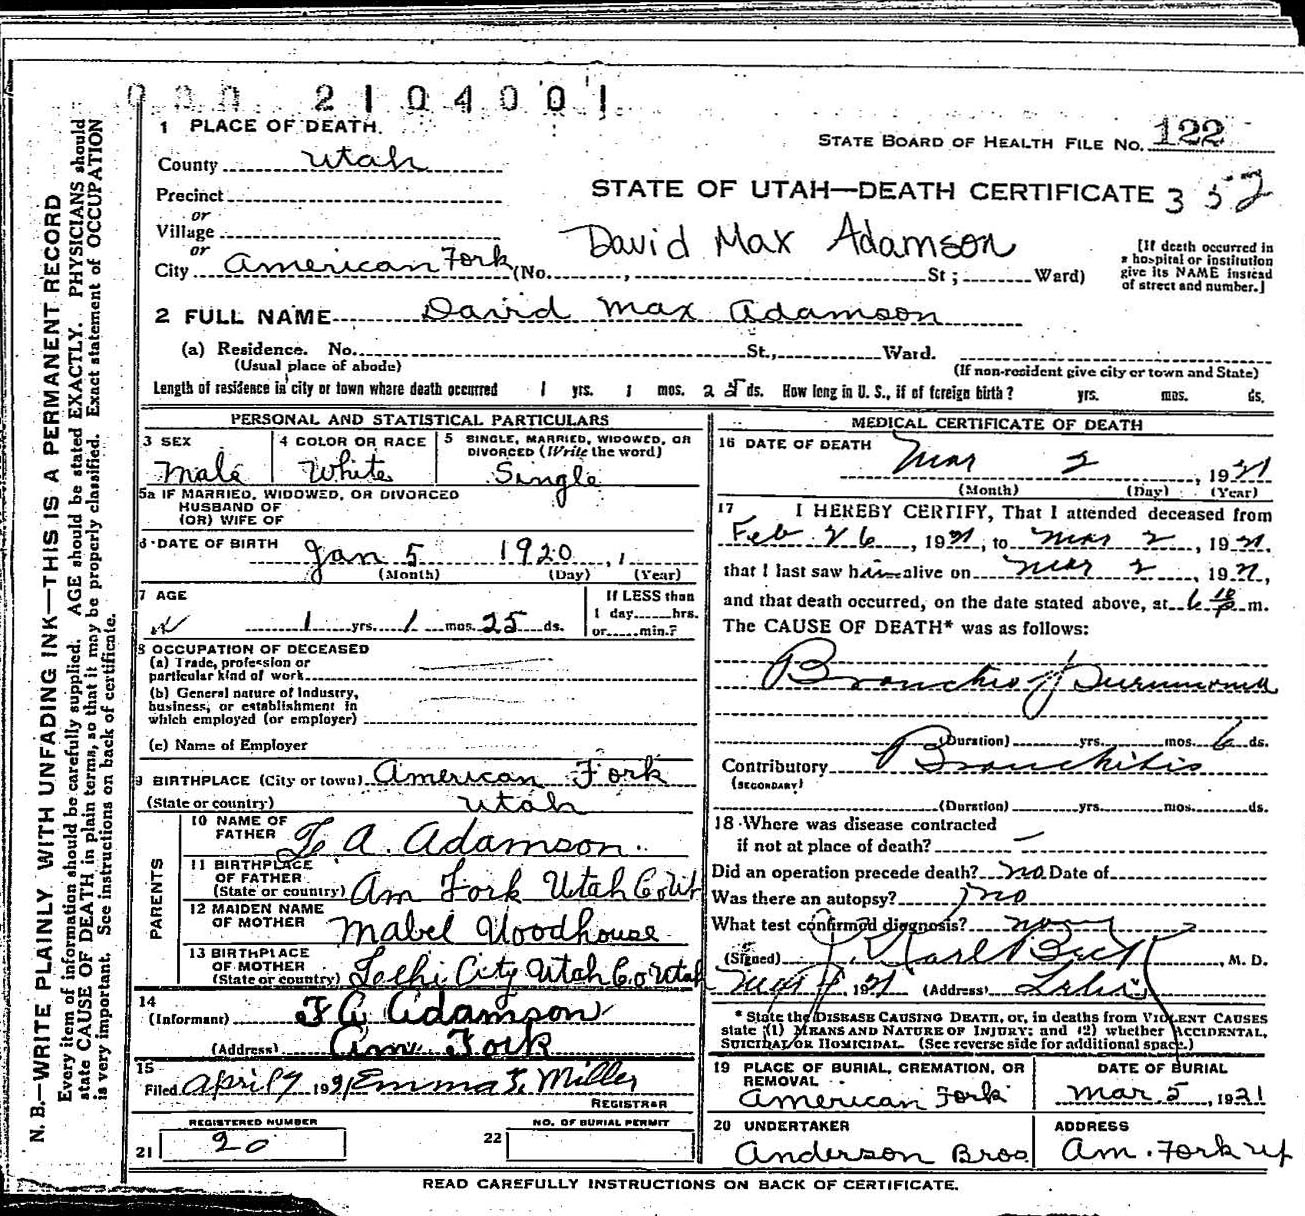 2104001
1 PLACE OF DEATH.
STATE BOARD OF HEALTH FILE NO. 122
County Utah
STATE OF UTAH—DEATH CERTIFICATE 352
Precinct
or
Village
or
City American Fork (No. , St ; Ward)
David Max Adamson
[If death occurred in
a hospital or institution
give its NAME instead
of street and number.]
2 FULL NAME David Max Adamson
(a) Residence. No. St., Ward.
(Usual place of abode)
(If non-resident give city or town and State)
Length of residence in city or town where death occurred 1 yrs. 1 mos. 25 ds. How long in U. S., if of foreign birth? yrs. mos. ds.
PERSONAL AND STATISTICAL PARTICULARS
3 SEX
Male
4 COLOR OR RACE
White
5 SINGLE, MARRIED, WIDOWED, OR
DIVORCED (Write the word)
Single
5a IF MARRIED, WIDOWED, OR DIVORCED
HUSBAND OF
(OR) WIFE OF
6 DATE OF BIRTH
Jan 5 1920
(Month) (Day) (Year)
7 AGE
1 yrs. 1 mos. 25 ds.
If LESS than
1 day hrs.
or min.?
8 OCCUPATION OF DECEASED
(a) Trade, profession or
particular kind of work
(b) General nature of Industry,
business, or establishment in
which employed (or employer)
(c) Name of Employer
9 BIRTHPLACE (City or town) American Fork
(State or country) Utah
PARENTS
10 NAME OF
FATHER F. A. Adamson.
11 BIRTHPLACE
OF FATHER
(State or country) Am Fork Utah Co Ut
12 MAIDEN NAME
OF MOTHER Mabel Woodhouse
13 BIRTHPLACE
OF MOTHER
(State or country) Lehi City Utah Co Utah
14
(Informant) F A Adamson
(Address) Am Fork
15
Filed April 7 1921 Emma F. Miller
REGISTRAR
REGISTERED NUMBER
21 20
NO. OF BURIAL PERMIT
22
MEDICAL CERTIFICATE OF DEATH
16 DATE OF DEATH
Mar 2, 1921
(Month) (Day) (Year)
17 I HEREBY CERTIFY, That I attended deceased from
Feb 26, 1921, to Mar 2, 1921.
that I last saw him alive on Mar 2, 1921,
and that death occurred, on the date stated above, at 6 10 p m.
The CAUSE OF DEATH* was as follows:
Broncho Pneumonia
(Duration) yrs. mos. 6 ds.
Contributory Bronchitis
(SECONDARY)
(Duration) yrs. mos. ds.
18 Where was disease contracted
if not at place of death? —
Did an operation precede death? no Date of
Was there an autopsy? no
What test confirmed diagnosis?
(Signed) J. Karl Beck, M. D.
1921 (Address) Lehi
* State the DISEASE CAUSING DEATH, or, in deaths from VIOLENT CAUSES
state (1) MEANS AND NATURE OF INJURY; and (2) whether ACCIDENTAL,
SUICIDAL, OR HOMICIDAL. (See reverse side for additional space.)
19 PLACE OF BURIAL, CREMATION, OR
REMOVAL
American Fork
DATE OF BURIAL
Mar 5, 1921
20 UNDERTAKER
Anderson Bros.
ADDRESS
Am. Fork
READ CAREFULLY INSTRUCTIONS ON BACK OF CERTIFICATE.
N. B.—WRITE PLAINLY WITH UNFADING INK—THIS IS A PERMANENT RECORD
Every item of information should be carefully supplied. AGE should be stated EXACTLY. PHYSICIANS should
state CAUSE OF DEATH in plain terms, so that it may be properly classified. Exact statement of OCCUPATION
is very important. See instructions on back of certificate.